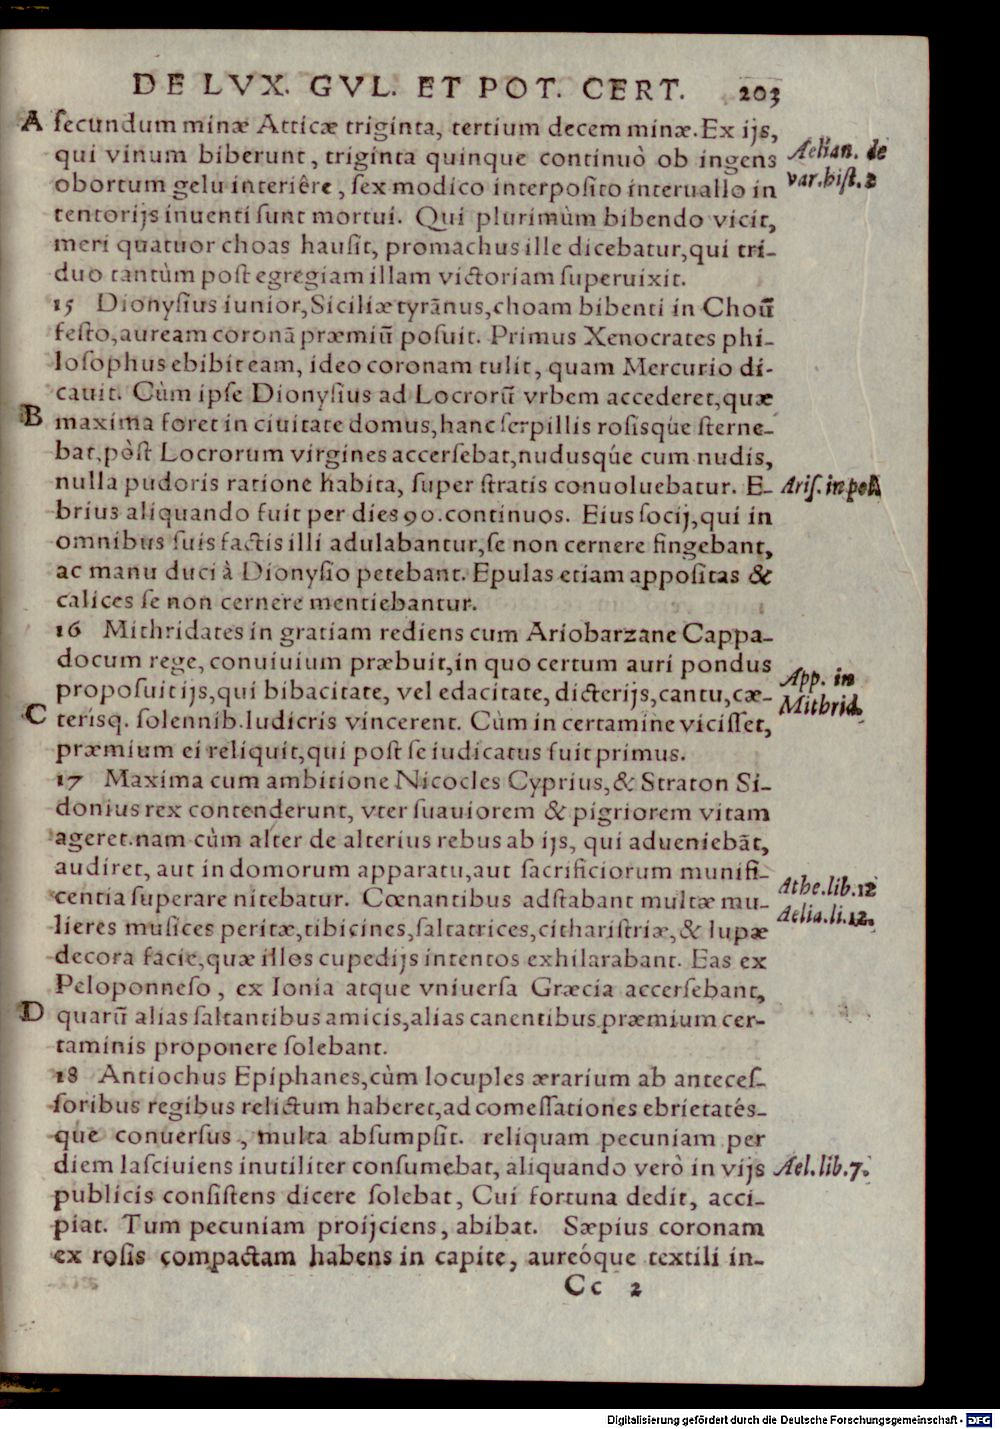 DE LVX. GVL. ET POT. CERT. 203
A secundum minæ Atticæ triginta, tertium decem minæ. Ex ijs,
qui vinum biberunt, triginta quinque continuò ob ingens
obortum gelu interiêre, sex modico interposito interuallo in
tentorijs inuenti sunt mortui. Qui plurimùm bibendo vicit,
meri quatuor choas hausit, promachus ille dicebatur, qui tri-
duo tantùm post egregiam illam victoriam superuixit.
Aelian. de
var. hist. 2
15 Dionysius iunior, Siciliæ tyrãnus, choam bibenti in Choũ
festo, auream coronã præmiũ posuit. Primus Xenocrates phi-
losophus ebibit eam, ideo coronam tulit, quam Mercurio di-
cauit. Cùm ipse Dionysius ad Locrorũ vrbem accederet, quæ
B maxima foret in ciuitate domus, hanc serpillis rosisq́ue sterne-
bat, pòst Locrorum virgines accersebat, nudusq́ue cum nudis,
nulla pudoris ratione habita, super stratis conuoluebatur. E-
brius aliquando fuit per dies 90. continuos. Eius socij, qui in
omnibus suis factis illi adulabantur, se non cernere fingebant,
ac manu duci à Dionysio petebant. Epulas etiam appositas &
calices se non cernere mentiebantur.
Aris. in poli
16 Mithridates in gratiam rediens cum Ariobarzane Cappa-
docum rege, conuiuium præbuit, in quo certum auri pondus
proposuit ijs, qui bibacitate, vel edacitate, dicterijs, cantu, cæ-
C terisq. solennib. ludicris vincerent. Cùm in certamine vicisset,
præmium ei reliquit, qui post se iudicatus fuit primus.
App. in
Mithrid.
17 Maxima cum ambitione Nicocles Cyprius, & Straton Si-
donius rex contenderunt, vter suauiorem & pigriorem vitam
ageret. nam cùm alter de alterius rebus ab ijs, qui adueniebãt,
audiret, aut in domorum apparatu, aut sacrificiorum munifi-
centia superare nitebatur. Cœnantibus adstabant multæ mu-
lieres musices peritæ, tibicines, saltatrices, citharistriæ, & lupæ
decora facie, quæ illos cupedijs intentos exhilarabant. Eas ex
Peloponneso, ex Ionia atque vniuersa Græcia accersebant,
D quarũ alias saltantibus amicis, alias canentibus præmium cer-
taminis proponere solebant.
Athe. lib. 12
Aelia. li. 12.
18 Antiochus Epiphanes, cùm locuples ærarium ab anteces-
soribus regibus relictum haberet, ad comessationes ebrietatés-
que conuersus, multa absumpsit. reliquam pecuniam per
diem lasciuiens inutiliter consumebat, aliquando verò in vijs
publicis consistens dicere solebat, Cui fortuna dedit, acci-
piat. Tum pecuniam proijciens, abibat. Sæpius coronam
ex rosis compactam habens in capite, aureóque textili in-
Ael. lib. 7.
Cc 2
Digitalisierung gefördert durch die Deutsche Forschungsgemeinschaft - DFG